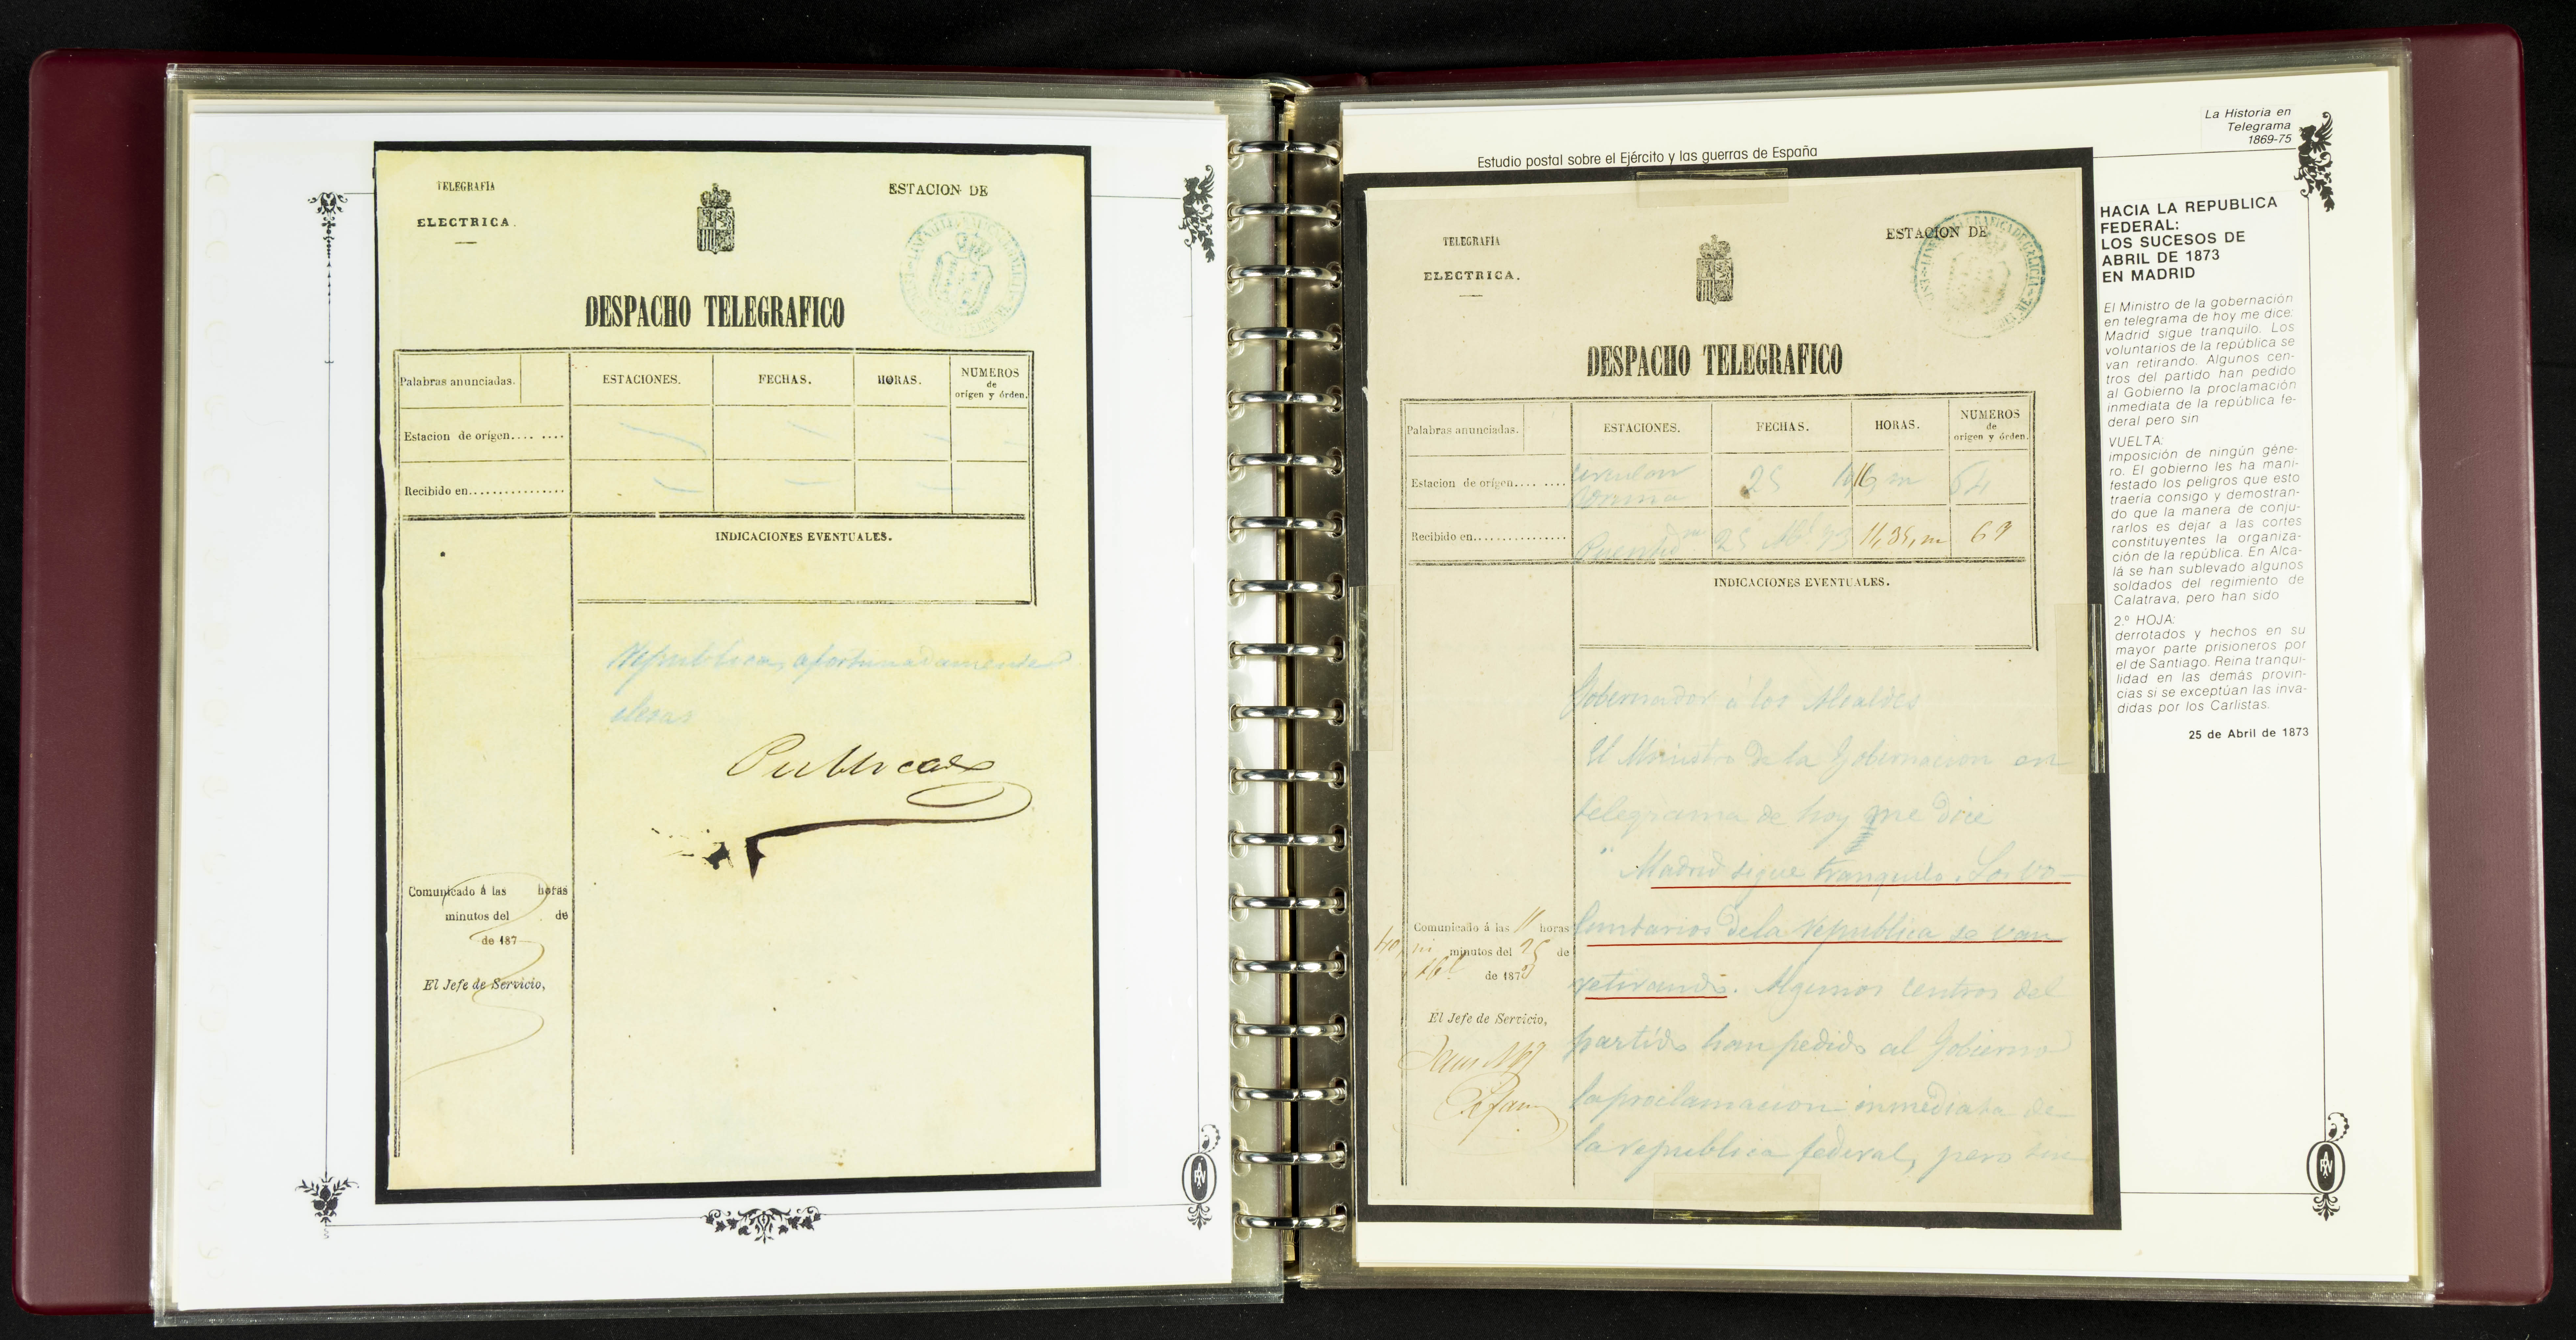 TELEGRAFIA
ELECTRICA.
ESTACION DE
DESPACHO TELEGRAFICO
Palabras anunciadas.
ESTACIONES.
FECHAS.
HORAS.
NUMEROS
de
origen y órden.
Estacion de origen.... ....
Recibido en................
INDICACIONES EVENTUALES.
Republica, afortunadamente
Comunicado á las horas
minutos del de
de 187
El Jefe de Servicio,
La Historia en
Telegrama
1869-75
Estudio postal sobre el Ejército y las guerras de España
TELEGRAFIA
ELECTRICA.
ESTACION DE
DESPACHO TELEGRAFICO
Palabras anunciadas.
ESTACIONES.
FECHAS.
HORAS.
NUMEROS
de
origen y órden.
Estacion de origen.... ....
25
64
Recibido en................
25
11,35, m
69
INDICACIONES EVENTUALES.
Gobernador á los Alcaldes
El Ministro de la Gobernacion en
telegrama de hoy me dice
" Madrid sigue tranquilo. Los vo-
luntarios de la republica se van
retirando. Algunos centros del
partido han pedido al Gobierno
la proclamacion inmediata de
la republica federal, pero sin
Comunicado á las 11 horas
40, m minutos del 25 de
Abl de 1873
El Jefe de Servicio,
HACIA LA REPUBLICA
FEDERAL:
LOS SUCESOS DE
ABRIL DE 1873
EN MADRID
El Ministro de la gobernación
en telegrama de hoy me dice:
Madrid sigue tranquilo. Los
voluntarios de la república se
van retirando. Algunos cen-
tros del partido han pedido
al Gobierno la proclamación
inmediata de la república fe-
deral pero sin
VUELTA:
imposición de ningún géne-
ro. El gobierno les ha mani-
festado los peligros que esto
traería consigo y demostran-
do que la manera de conju-
rarlos es dejar a las cortes
constituyentes la organiza-
ción de la república. En Alca-
lá se han sublevado algunos
soldados del regimiento de
Calatrava, pero han sido
2.º HOJA:
derrotados y hechos en su
mayor parte prisioneros por
el de Santiago. Reina tranqui-
lidad en las demás provin-
cias si se exceptúan las inva-
didas por los Carlistas.
25 de Abril de 1873